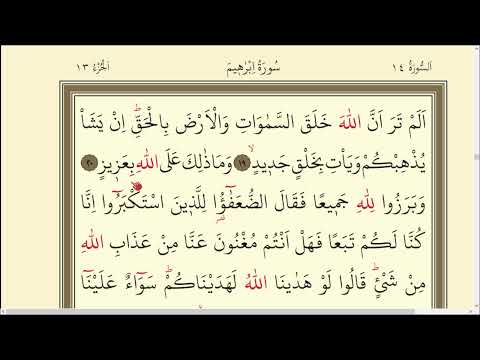 اَلسُّورَةُ ١٤ سُورَةُ اِبْرٰه۪يمَ اَلْجُزْءُ ١٣
اَلَمْ تَرَ اَنَّ اللّٰهَ خَلَقَ السَّمٰوَاتِ وَالْاَرْضَ بِالْحَقِّۜ اِنْ يَشَأْ
يُذْهِبْكُمْ وَيَأْتِ بِخَلْقٍ جَد۪يدٍۙ ١٩ وَمَا ذٰلِكَ عَلَى اللّٰهِ بِعَز۪يزٍ ٢٠
وَبَرَزُوا لِلّٰهِ جَم۪يعًا فَقَالَ الضُّعَفٰٓؤُ۬ا لِلَّذ۪ينَ اسْتَكْبَرُٓوا اِنَّا
كُنَّا لَكُمْ تَبَعًا فَهَلْ اَنْتُمْ مُغْنُونَ عَنَّا مِنْ عَذَابِ اللّٰهِ
مِنْ شَيْءٍۜ قَالُوا لَوْ هَدٰينَا اللّٰهُ لَهَدَيْنَاكُمْۜ سَوَٓاءٌ عَلَيْنَٓا